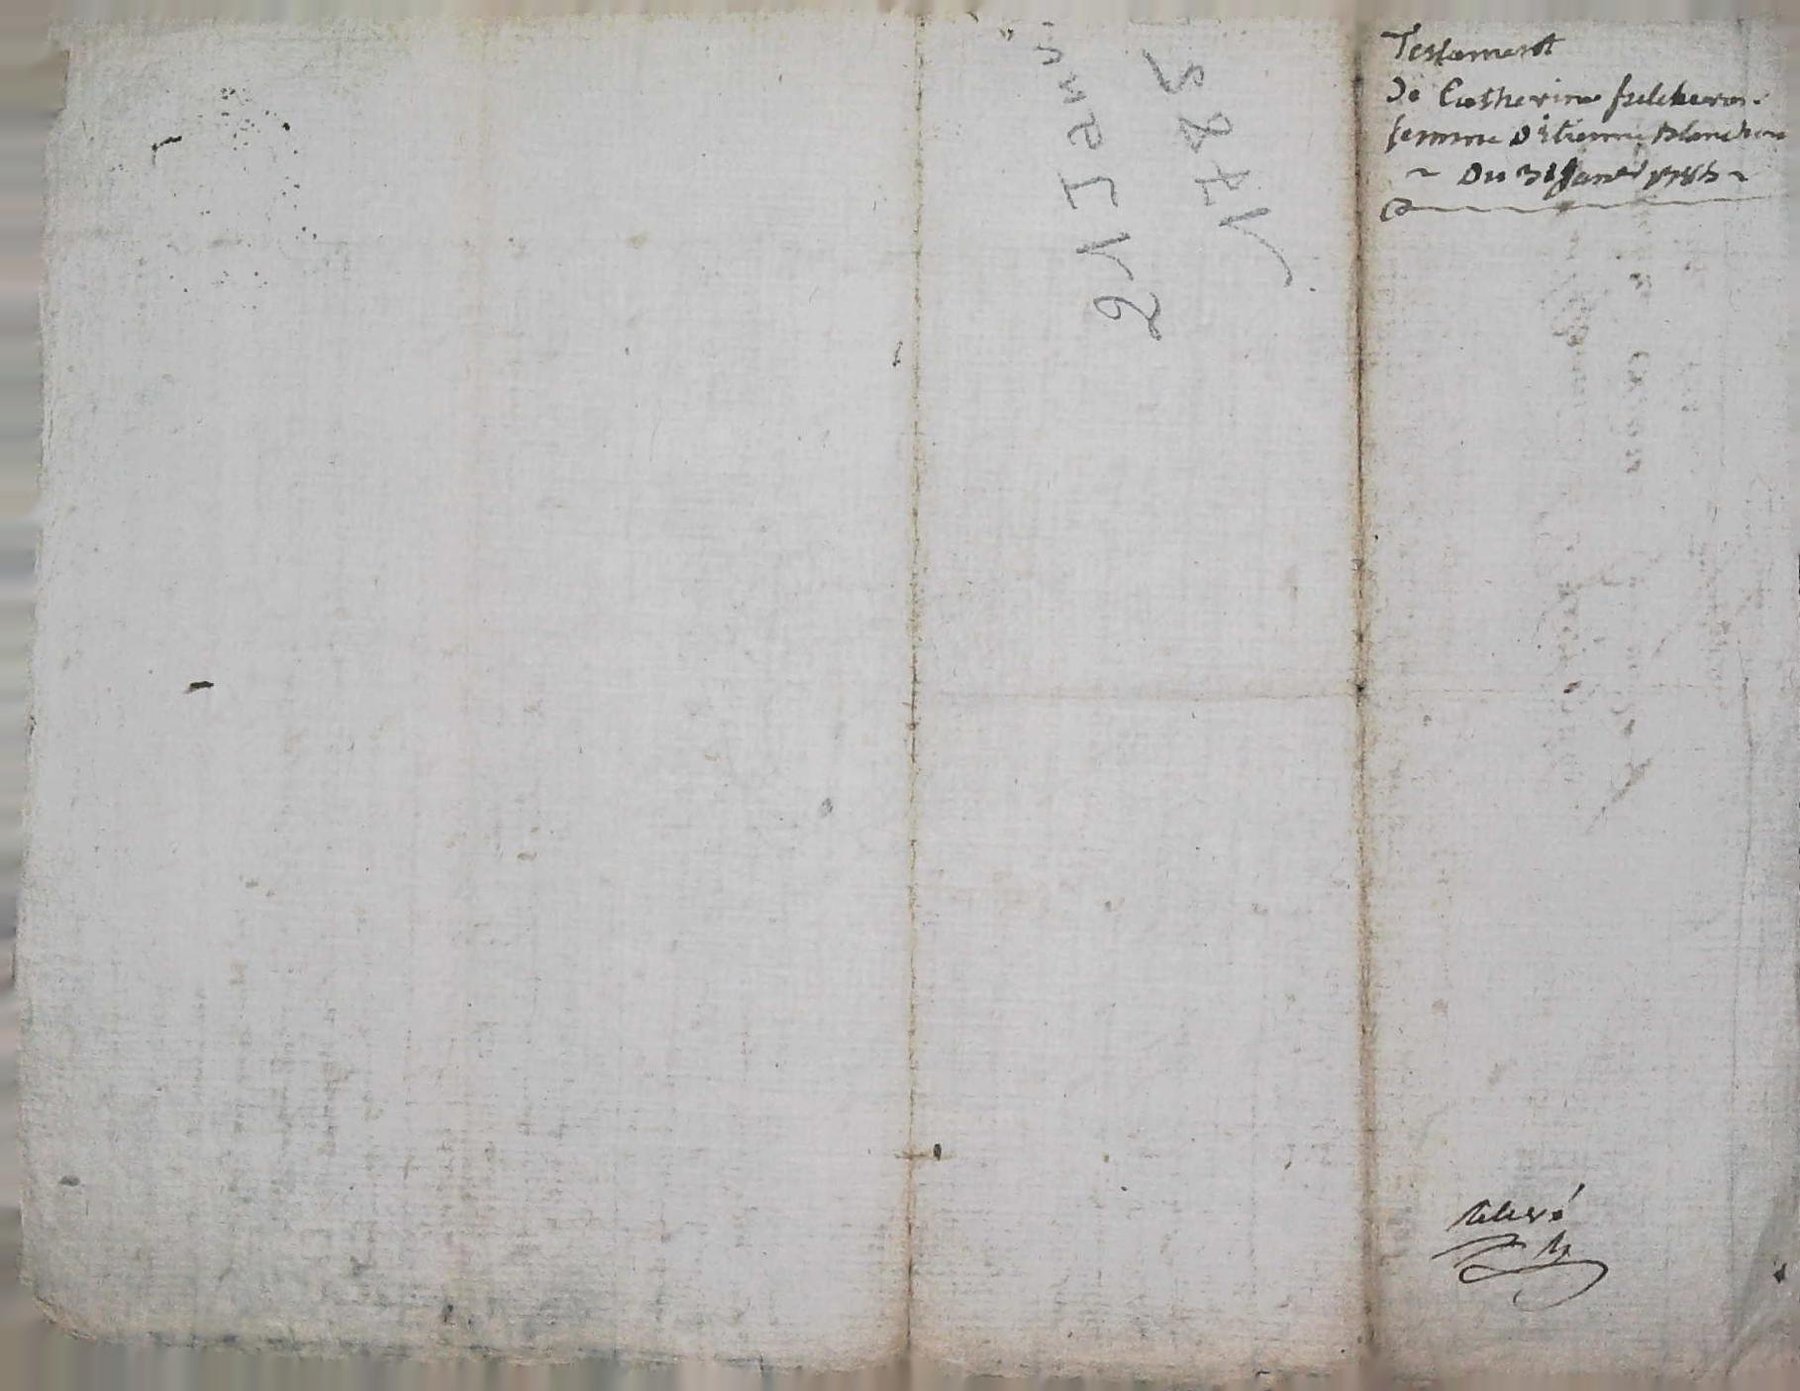 Testament
De Catherine
femme D'Etienne Blanchon
~ Du 31 Janer 1785 ~
relevé
1785